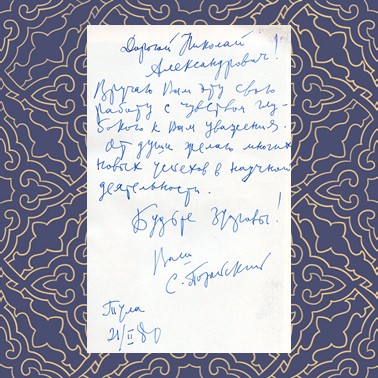 Дорогой Николай
Александрович!
Вручаю Вам эту свою
работу с чувством глу-
бокого к Вам уважения.
От души желаю многих
новых успехов в научной
деятельности.
Будьте здоровы!
Ваш
С.
Тула
21/II 80